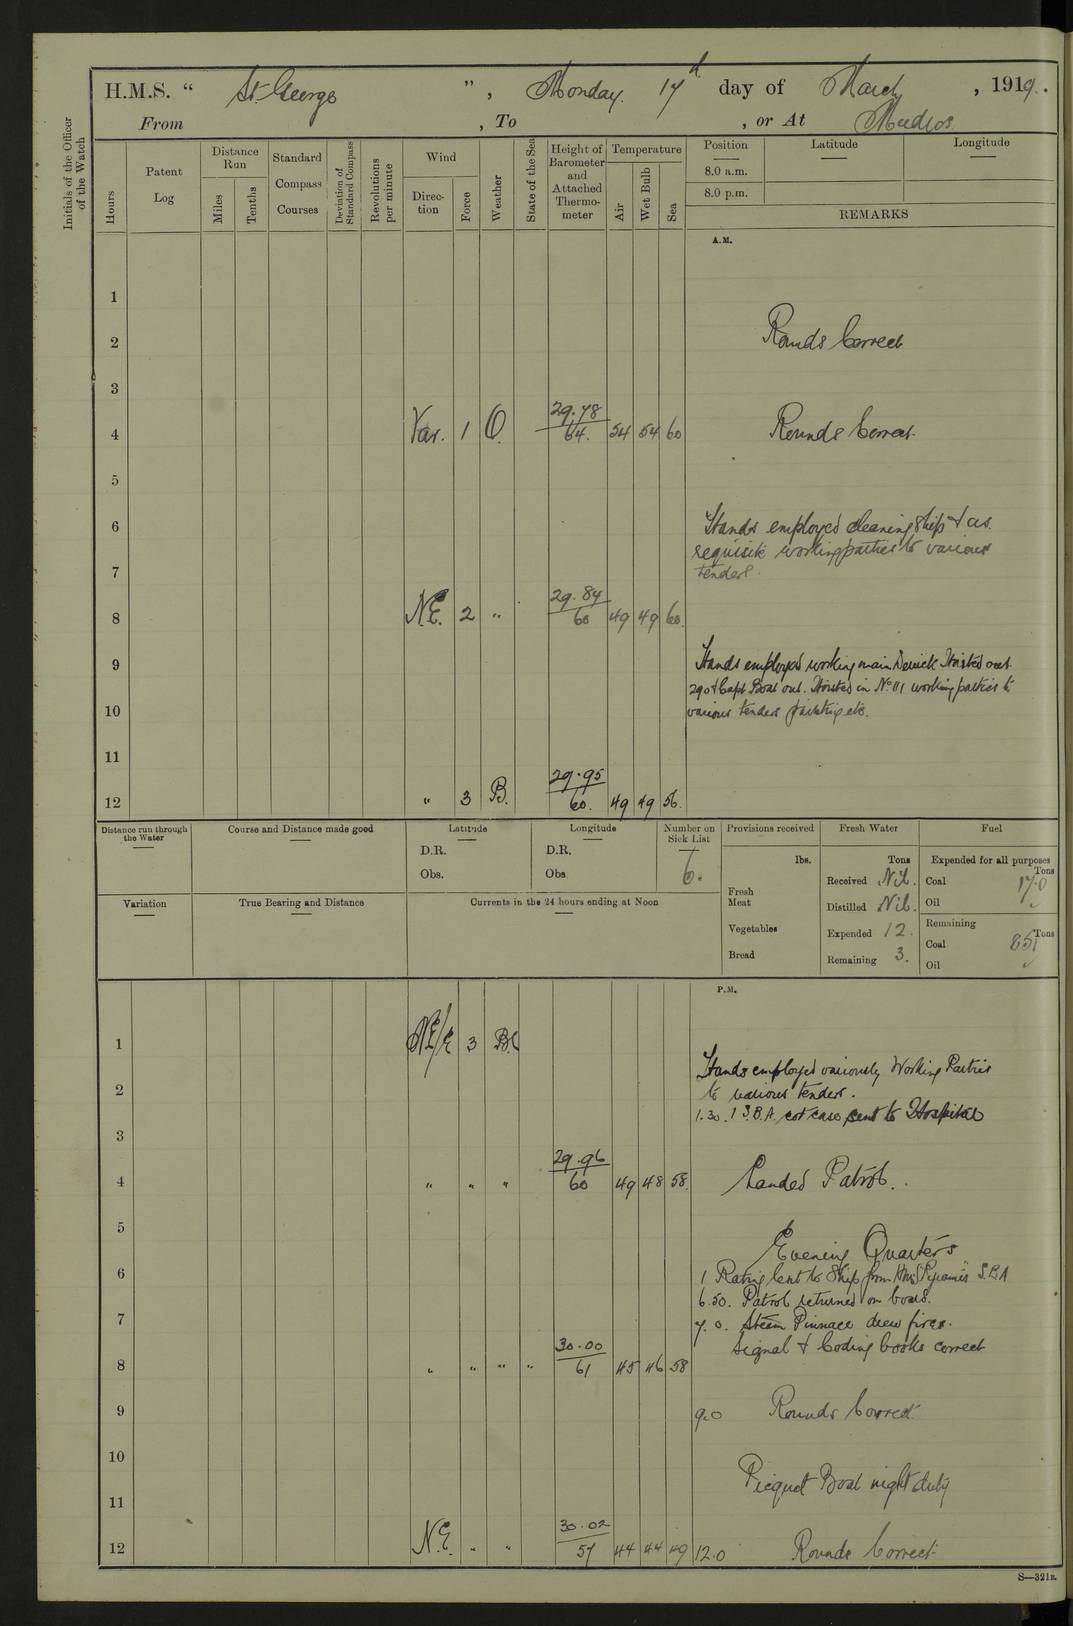 H.M.S. “ St George ” , Monday 17th day of March , 1919.
From , To , or At Mudros
Initials of the Officer of the Watch
Hours
Patent Log
Distance Run
Miles
Tenths
Standard Compass Courses
Deviation of Standard Compass
Revolutions per minute
Wind
Direction
Force
Weather
State of the Sea
Height of Barometer and Attached Thermometer
Temperature
Air
Wet Bulb
Sea
Position Latitude Longitude
8.0 a.m.
8.0 p.m.
REMARKS
A.M.
1
2 Rounds Correct
3
4 Var. 1 O. 29.78 / 64. 54 54 60 Rounds Correct
5
6 Hands employed cleaning ship & as
requisite working parties to various
7 tenders.
8 N.E. 2 " 29.84 / 60 49 49 60.
9 Hands employed working main Derrick Hoisted out
290 & Capt Boat out. Hoisted in No 111 working parties to
10 various tenders painting etc.
11
12 " 3 B. 29.95 / 60. 49 49 56.
Distance run through the Water
Course and Distance made good
Latitude
D.R.
Obs.
Longitude
D.R.
Obs
Number on Sick List
6.
Provisions received
lbs.
Fresh Meat
Vegetables
Bread
Fresh Water
Tons
Received Nil.
Distilled Nil.
Expended 12.
Remaining 3.
Fuel
Expended for all purposes
Tons
Coal 17.0
Oil
Remaining
Tons
Coal 851
Oil
Variation
True Bearing and Distance
Currents in the 24 hours ending at Noon
P.M.
1 NE/E 3 B.C
Hands employed variously Working Parties
2 to various tenders.
1.30. 1 S.B.A. cot case sent to Hospital
3
4 " " " 29.96 / 60 49 48 58. Landed Patrol.
5
Evening Quarters
6 1 Rating lent to Ship from HMS "Pyramis" S.B.A
6.50. Patrol returned on board.
7 7.0. Steam Pinnace drew fires.
Signal & Coding books correct
8 " " " " 30.00 / 61 45 46 58
9 9.0 Rounds Correct
10
Picquet Boat night duty
11
12 N.E. " " 30.02 / 57 44 44 49 12.0 Rounds Correct
S—321B.